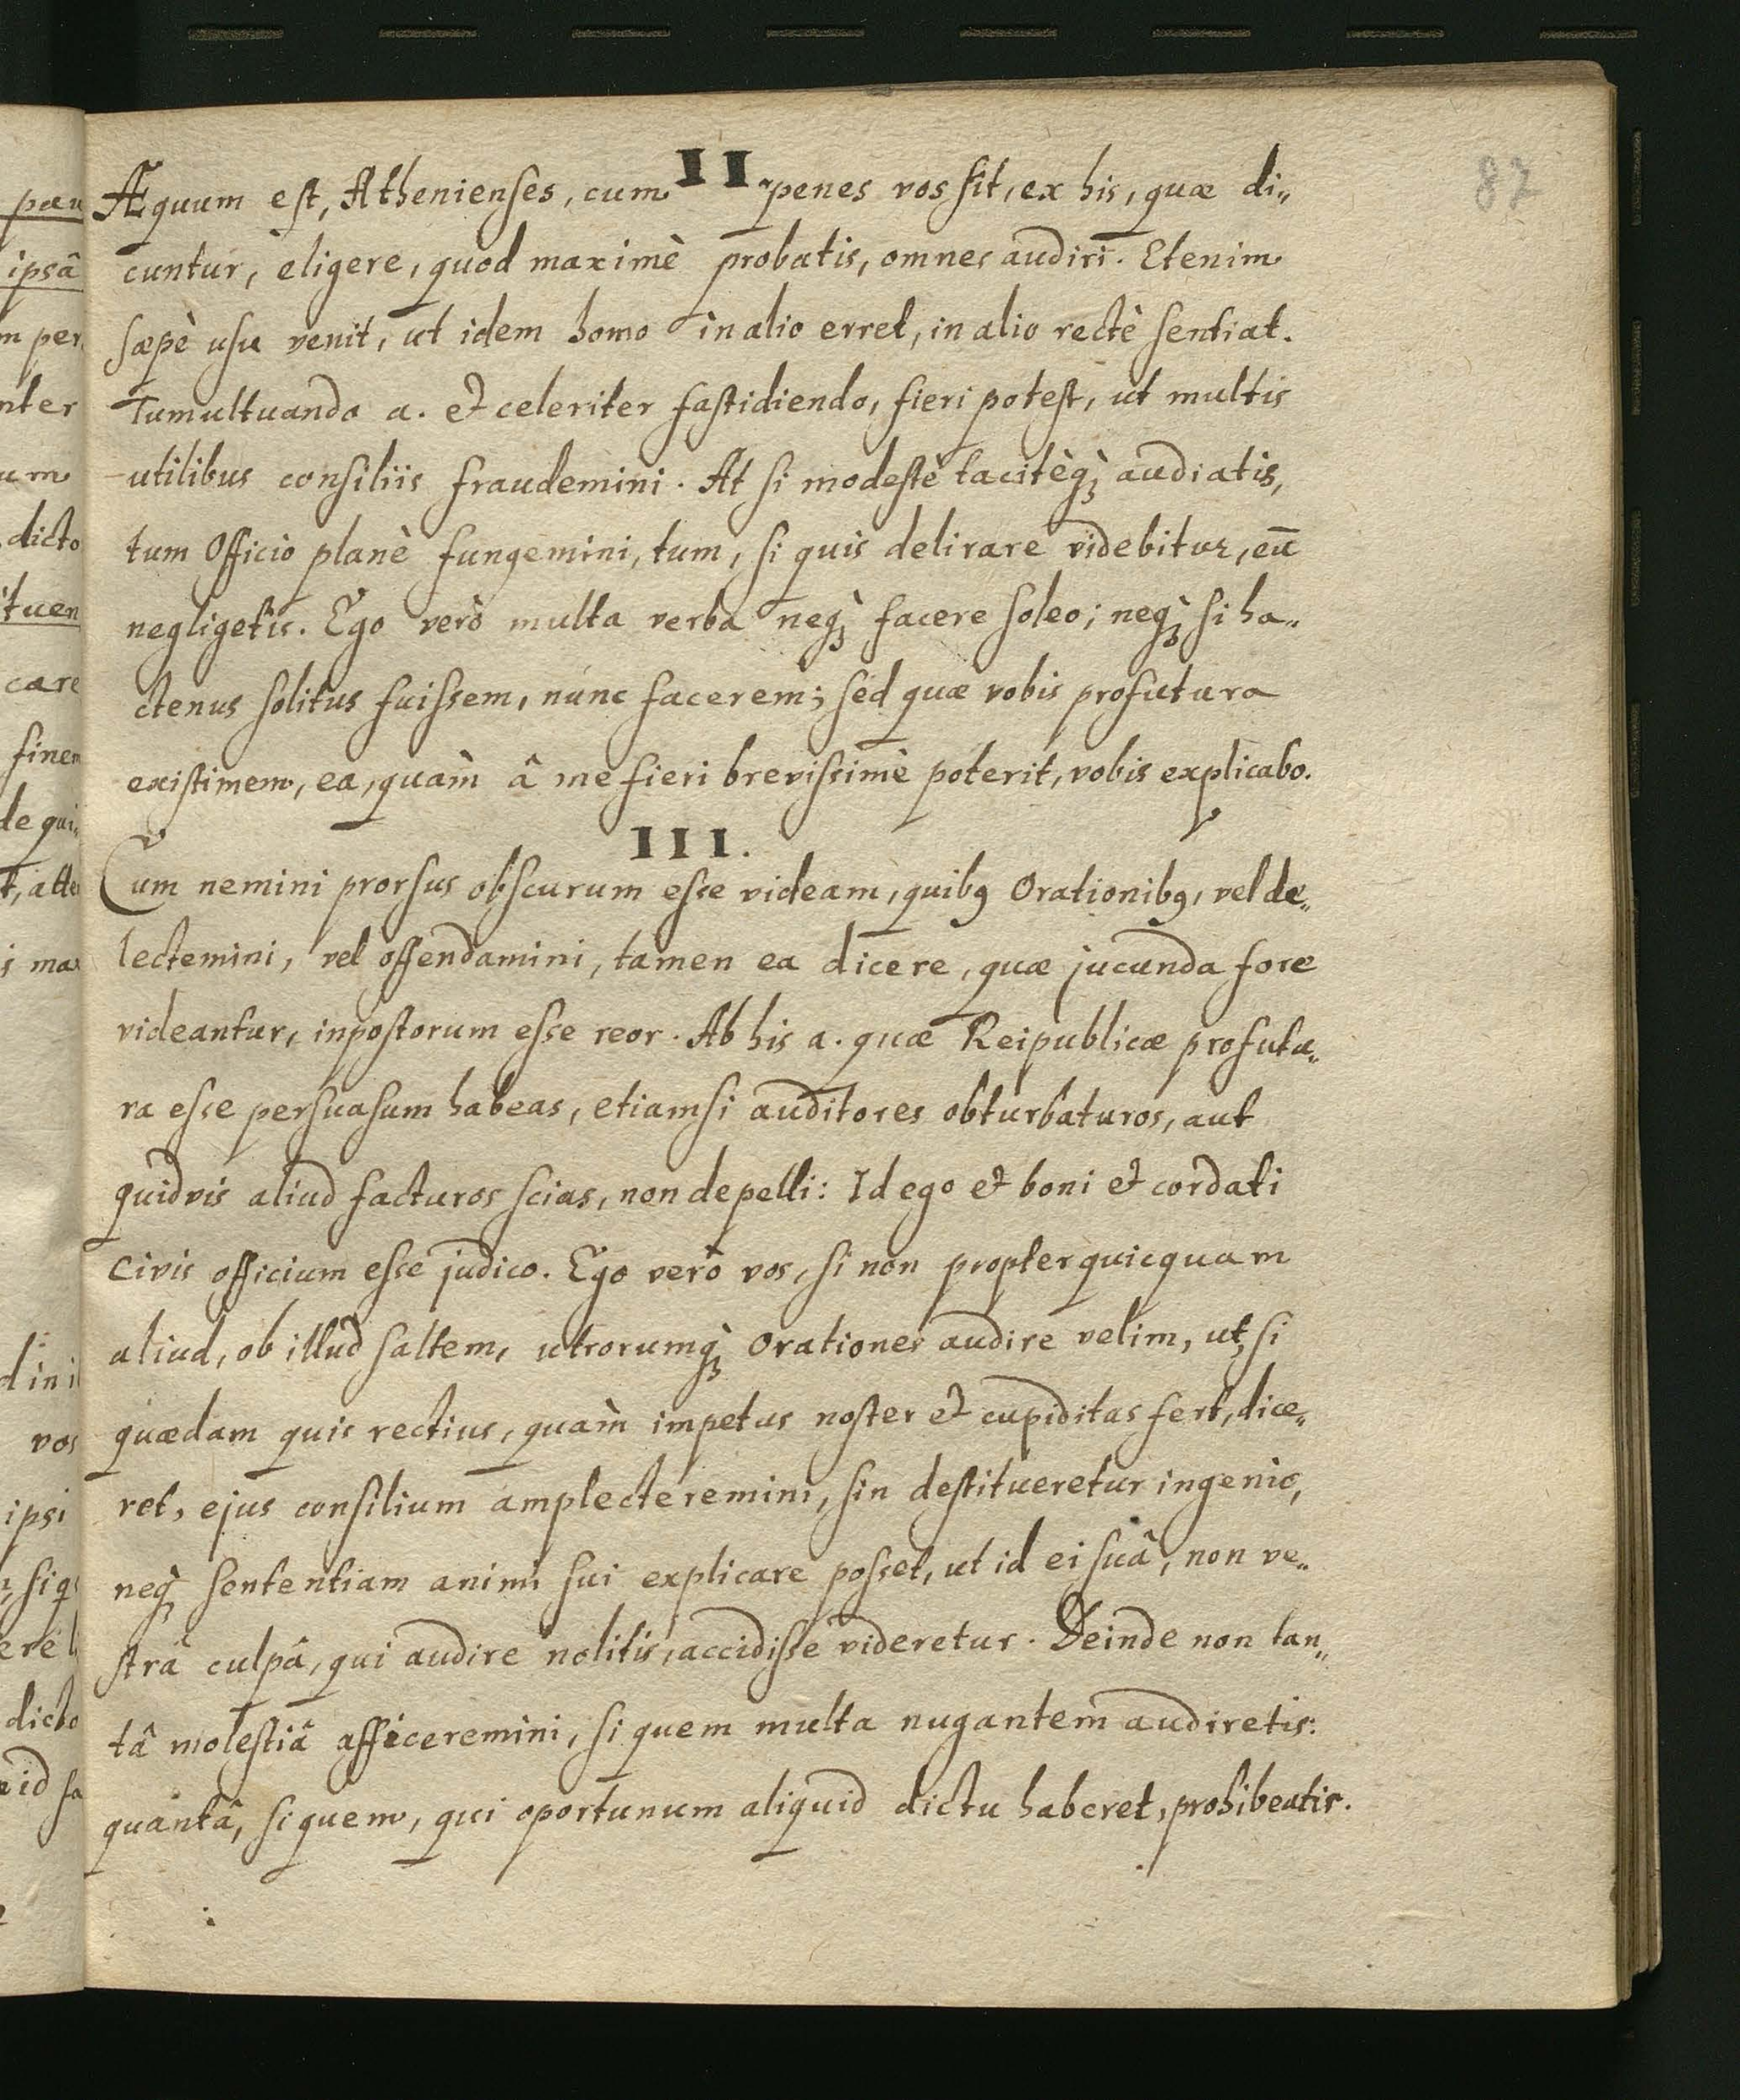 87
II.
Æquum est, Athenienses, cum penes vos sit, ex his, quæ di„
cuntur, eligere, quod maximè probatis, omnes audiri. Etenim
sæpè usu venit, ut idem homo in alio erret, in alio rectè sentiat.
Tumultuando a. et celeriter fastidiendo, fieri potest, ut multis
utilibus consiliis fraudemini. At si modestè tacitèqꝫ audiatis,
tum Officio planè fungemini, tum, si quis delirare videbitur, eū
negligetis. Ego verò multa verba neqꝫ facere soleo; neqꝫ si ha„
ctenus solitus fuissem, nunc facerem; sed quæ vobis profutura
existimem, ea, quàm â me fieri brevissimè poterit, vobis explicabo.
III.
Cum nemini prorsus obscurum esse videam, quibꝯ Orationibꝯ, vel de„
lectemini, vel offendamini, tamen ea dicere, quæ jucunda fore
videantur, inpostorum esse reor. Ab his a. quæ Reipublicæ profutu„
ra esse persuasum habeas, etiamsi auditores obturbaturos, aut
quidvis aliud facturos scias, non depelli: Id ego et boni et cordati
Civis officium esse judico. Ego verò vos, si non propter quicquam
aliud, ob illud saltem, utrorumqꝫ Orationes audire velim, ut, si
quædam quis rectius, quàm impetus noster et cupiditas fert, dice„
ret, ejus consilium amplecteremini, sin destitueretur ingenio,
neqꝫ sententiam animi sui explicare posset, ut id ei suâ, non ve„
strâ culpâ, qui audire nolitis, accidisse videretur. Deinde non tan„
tâ molestiâ afficeremini, si quem multa nugantem audiretis:
quantâ, si quem, qui oportunum aliquid dictu haberet, prohibeatis.